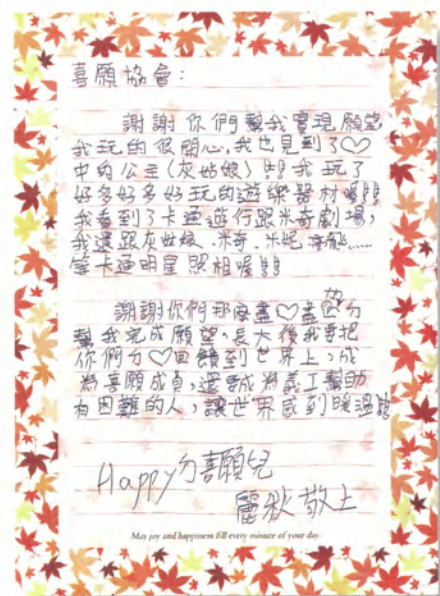 喜願協會：
謝謝你們幫我實現願望
我玩的很開心，我也見到了♡
中的公主（灰姑娘）!!我玩了
好多好多好玩的遊樂器材喔!!
我看到了卡通遊行跟米奇劇場，
我還跟灰姑娘、米奇、米妮、……
等卡通明星照相喔!!
謝謝你們那麼盡♡盡力ㄉ
幫我完成願望，長大後我要把
你們ㄉ♡回饋到世界上，成
為喜願成員，還成為義工幫助
有困難的人，讓世界感到暖溫
Happyㄉ喜願兒
秋敬上
May joy and happiness fill every minute of your day.